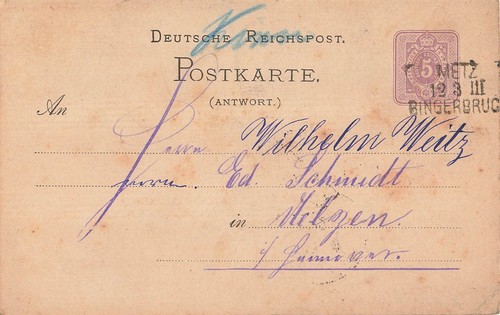 DEUTSCHE REICHSPOST.
POSTKARTE.
(ANTWORT.)
5
METZ
12 3 III
BINGERBRUCK
An
Herrn Wilhelm Weitz
Herrn Ed. Schmidt
in Uelzen.
i/ Hannover.